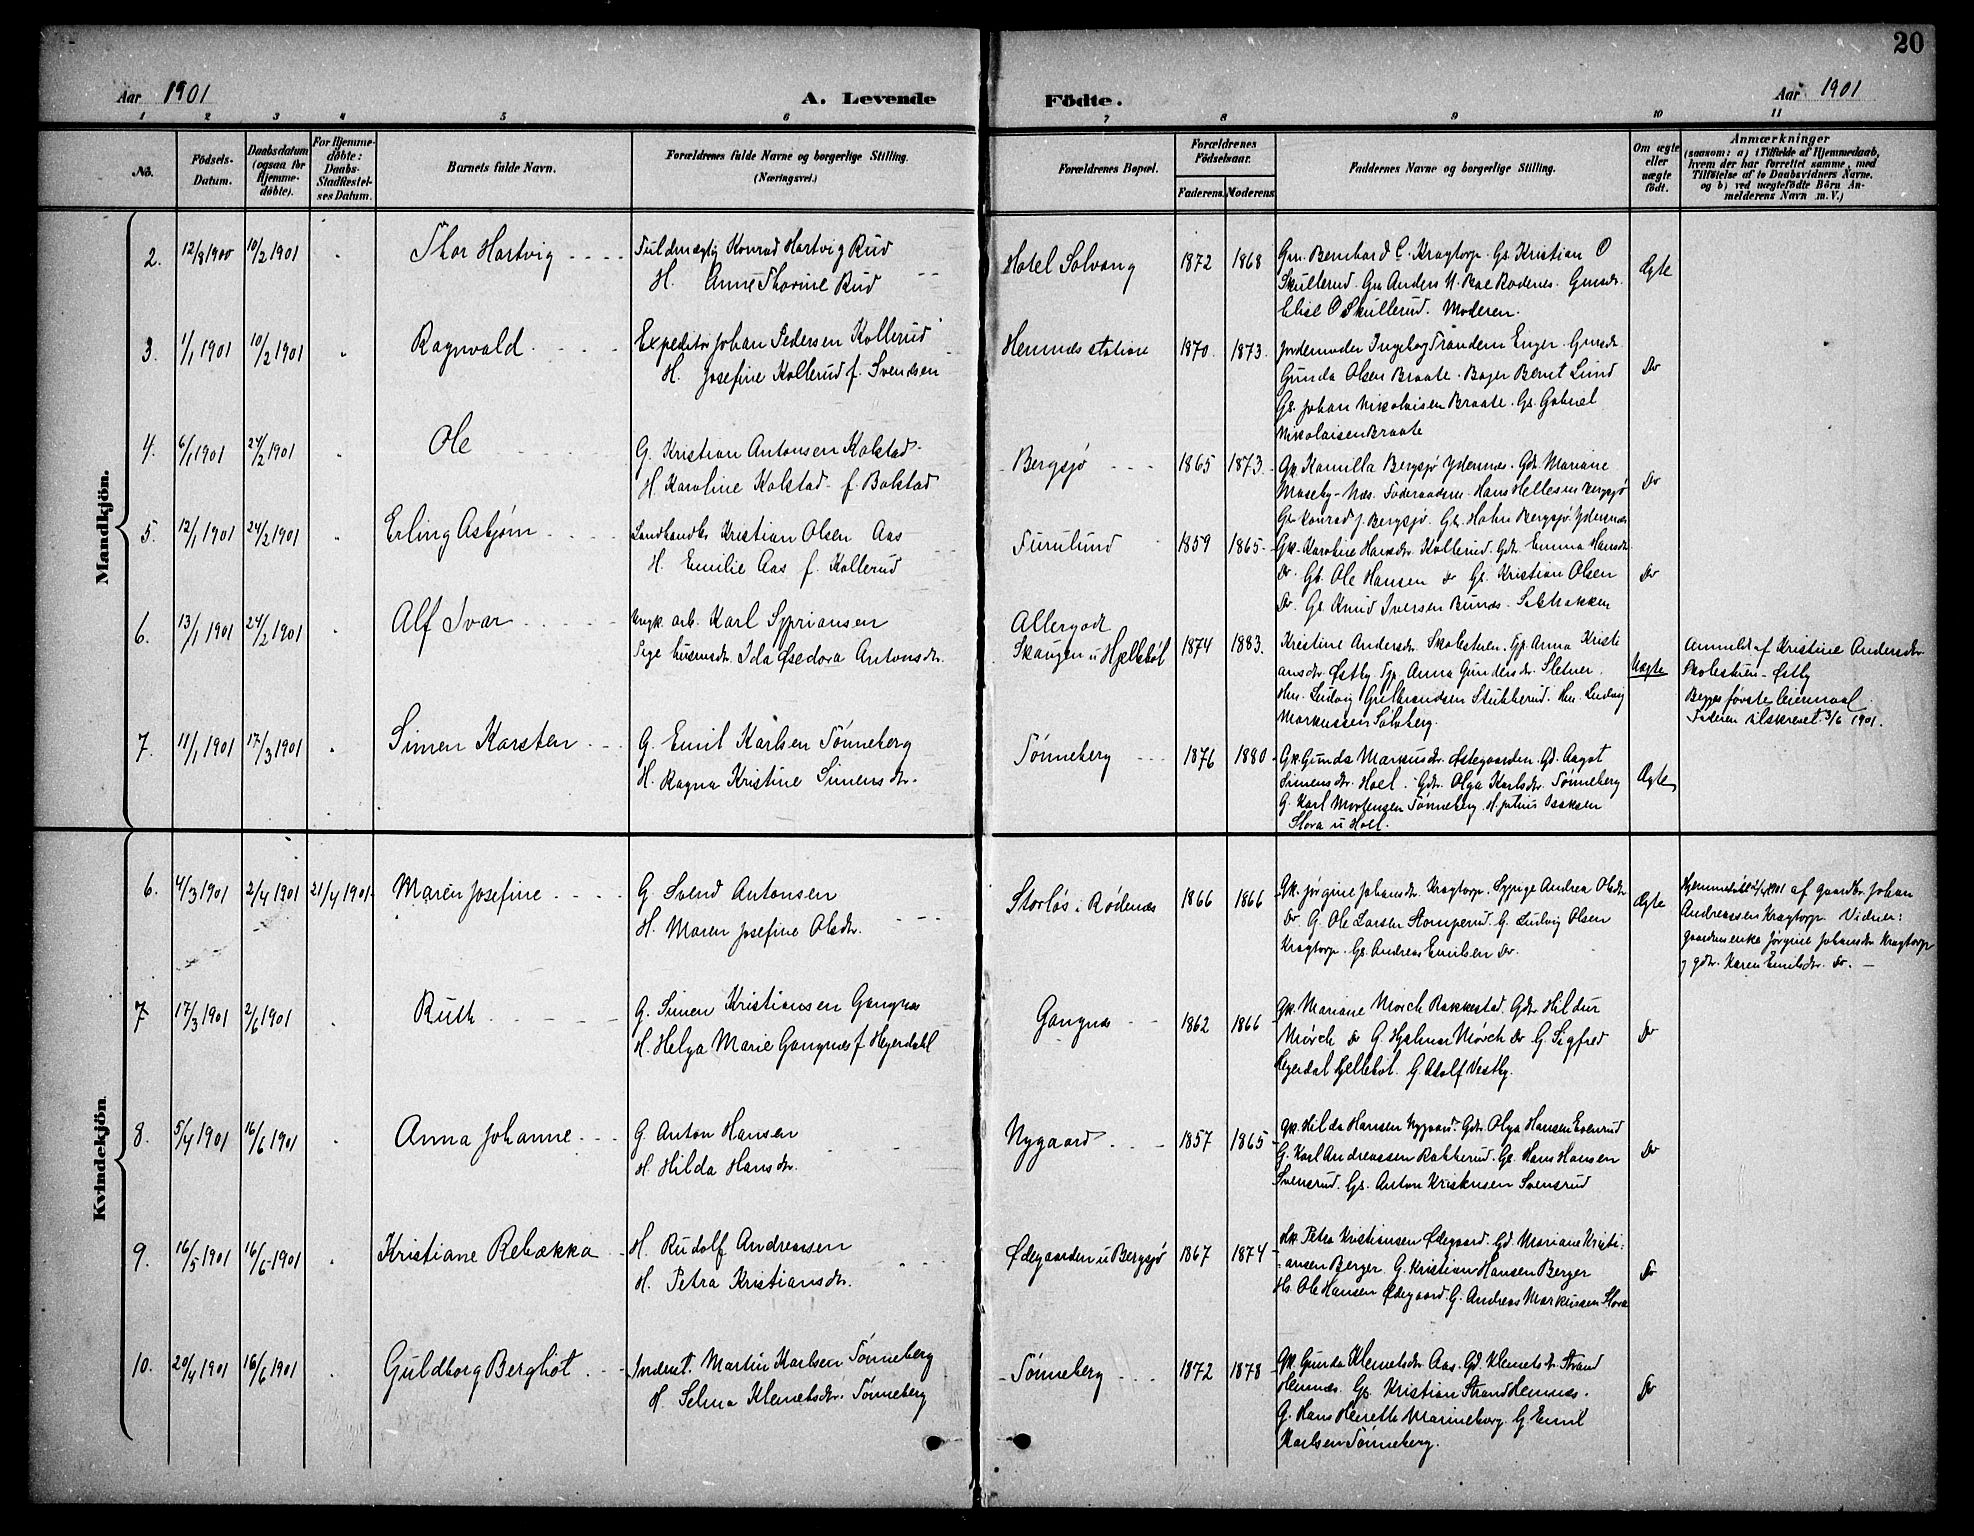 20
Aar 1901
A. Levende Födte.
Aar 1901
1 2 3 4 5 6 7 8 9 10 11
No.
Födsels-Datum.
Daabsdatum (ogsaa for Hjemme-döbte).
For Hjemme-döbte: Daabs-Stadfæstel-ses Datum.
Barnets fulde Navn.
Forældrenes fulde Navne og borgerlige Stilling. (Næringsvei.)
Forældrenes Bopæl.
Forældrenes Födselsaar.
Faderens. Moderens.
Faddernes Navne og borgerlige Stilling.
Om ægte eller uægte födt.
Anmærkninger
(saasom: a) i Tilfælde af Hjemmedaab, hvem der har forrettet samme, med Tilföielse af to Daabsvidners Navne, og b) ved uægtefödte Börn An-melderens Navn m. V.)
Mandkjön.
2. 12/8 1900 10/2 1901 Thor Hartvig
Fuldmægtig Konrad Hartvig Rud
H. Anne Thorine Rud
Hotel Solvang 1872 1868
Gm. Bernhard C. Kragtorp. Gs. Kristian O
Skullerud. Gm Anders N. Bae Rødenes. Gmdr.
Elise O Skullerud. Moderen.
Ægte
3. 1/1 1901 10/2 1901 Ragnvald
Expeditør Johan Pedersen Kollerud
H. Josefine Kollerud f. Svendsen
Hemnæs station 1870 1873
Jordemoder Ingebog Trandem Enger. Gmdr
Gunda Olsen Braate. Bager Bernt Lund
Gs. Johan Nikolaisen Braate. Gs. Gabriel
Nikolaisen Braate
Do
4. 6/1 1901 24/2 1901 Ole
G. Kristian Antonsen Kolstad
H Karoline Kolstad f. Bolstad
Bergsjø 1865 1873
Gk. Kamilla Bergsjø Ydennes. Gdr. Mariane
Moseby-Næs. Føderaadsm. Hans Hellesen Bergsjø
Gs. Konrad J Bergsjø. Gs. Hahn Bergsjø Ydennes
Do
5. 12/1 1901 24/2 1901 Erling Asbjørn
Landhandler Kristian Olsen Aas
H. Emilie Aas f. Kollerud
Furulund 1859 1865
Gk. Karoline Hansdr. Kollerud. Gdr. Emma Hansdr.
Do. Gb. Ole Hansen do Gs. Kristian Olsen
Do. Gs. Knud Iversen Bunæs. Setskogen
Do
6. 13/1 1901 24/2 1901 Alf Ivar
arb. Karl Sypriansen
Pige husmdr. Ida Isedora Antonsdr.
Allergodt
Skaugen u Hjellebøl 1874 1883
Kristine Andersdr. Skolestuen. Gp. Anna Kristi
ansdr. Østby. Gp. Anna Gundersdr. Sletner.
Hm. Ludvig Gulbrandsen Stubberud. Hm. Ludvig
Markussen Solberg.
Uægte
Anmeldt af Kristine Andersdr
Skolestuen - Østby
Begges første leiermaal
Faderen tilskrevet 3/6 1901.
7. 11/1 1901 17/3 1901 Simen Karsten
G. Emil Karlsen Tønneberg
H. Ragna Kristine Simensdr.
Tønneberg 1876 1880
Gk. Gunda Markusdr. Østegaarden. Gd. Aagot
Simensdr. Hoel. Gdr. Olga Karlsdr. Tønneberg
G. Karl Mortensen Tønneberg. H. Julius Isaksen
Slora u Hoel.
Ægte
Kvindekjön.
6. 4/3 1901 2/4 1901 21/4 1901 Maren Josefine
G. Svend Antonsen
H. Maren Josefine Olsdr.
Storløs i Rødenæs 1866 1866
Gk. Jørgine Johansdr. Kragtorp. Sypige Andrea Olsdr
Do G. Ole Larsen Stomperud. G. Ludvig Olsen
Kragtorp. Gs. Andreas Emilsen Do.
Ægte
Hjemmedøbt 2/4 1901 af gaardbr. Johan
Andreassen Kragtorp. Vidner:
gaardmenke Jørgine Johansdr Kragtorp
og gdtr. Karen Emilsdr. Do.
7 17/3 1901 2/6 1901 Ruth
G. Simen Kristiansen Gangnæs
H. Helga Marie Gangnæs f Heyerdahl
Gangnæs 1862 1866
Gk. Mariane Mørch Rakkestad. Gdr. Hildur
Mørch do G. Hjalmar Mørch do G. Sigfred
Heyerdal Hellebøl. G. Adolf Vestby.
Do
8. 5/4 1901 16/6 1901 Anna Johanne
G. Anton Hansen
H. Hilda Hansdr.
Nygaard 1857 1865
Gk. Hilda Hansen Nygaard. Gdr. Olga Hansen Evenrud
G. Karl Andreassen Bakkerud. Gs. Hans Hansen
Svensrud. Gs. Anton Kristensen Svensrud
Do
9. 16/5 1901 16/6 1901 Kristiane Rebækka
H. Rudolf Andreassen
H. Petra Kristiansdr.
Ødegaarden u Bergsjø 1867 1874
Hk. Petra Kristiansen Ødegaard. Gd. Mariane Kristi-
ansen Berger. G. Kristian Hansen Berger
Hs. Ole Hansen Ødegaard. G. Andreas Markussen Slora
Do
10. 20/4 1901 16/6 1901 Guldborg Bergliot
Inderst. Martin Karlsen Tønneberg
H. Selma Klemetsdr. Tønneberg
Tønneberg 1872 1878
Gk. Gunda Klemetsdr. Aas. Gd. Klemetsdr. Strand
Hemnæs. Gs. Kristian Strand Hemnæs.
G. Hans Henrik Marineborg. G. Emil
Karlsen Tønneberg.
Do